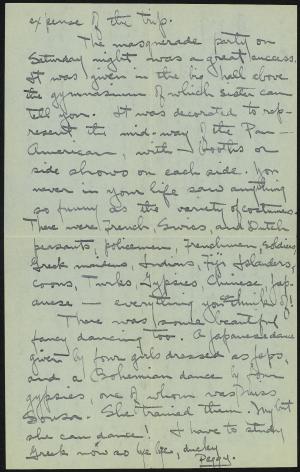 expense of the trip.
The masquerade party on
Saturday night was a great success.
It was given in the big hall above
the gymnasium of which sister can
tell you. It was decorated to rep-
resent the mid-way of the Pan-
American, with booths or
side shows on each side. You
never in your life saw anything
so funny as the variety of costumes.
There were French Swiss, and Dutch
peasants, policemen, Frenchmen, soldiers,
Greek maidens, Indians, Fiji Islanders,
coons, Turks, Gypsies, Chinese, Jap-
anese — everything you think of!
There was some beautiful
fancy dancing too. A Japanese dance
given by four girls dressed as Japs,
and a Bohemian dance by four
gypsies, one of whom was Miss
Souson. She trained them. My but
she can dance! I have to study
Greek now so bye bye, ducky
Peggy.